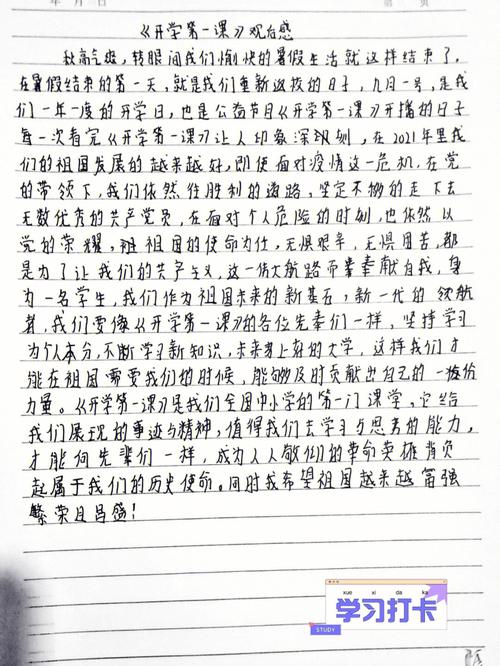 年 月 日 第 页
《开学第一课》观后感
秋高气爽，转眼间我们愉快的暑假生活就这样结束了，
在暑假结束的第一天，就是我们重新返校的日子，九月一号，是我
们一年一度的开学日，也是公益节目《开学第一课》开播的日子
每一次看完《开学第一课》让人印象深刻，在2021年里我
们的祖国发展的越来越好，即使面对疫情这一危机，在党
的带领下，我们依然往胜利的道路，坚定不移的走下去
无数优秀的共产党员，在面对个人危险的时刻，也依然以
党的荣耀，祖国的使命为任，无惧艰辛，无惧困苦，都
是为了让我们的共产主义，这一伟大航路而奉献自我，身
为一名学生，我们作为祖国未来的新基石，新一代的领航
者，我们要像《开学第一课》的各位先辈们一样，坚持学习
为个人本分，不断学习新知识，未来考上好的大学，这样我们才
能在祖国需要我们的时候，能够及时贡献出自己的一份
力量。《开学第一课》是我们全国中小学的第一门课堂，它给
我们展现的事迹与精神，值得我们去学习与思考的能力，
才能向先辈们一样，成为人人敬仰的革命英雄背负
起属于我们的历史使命。同时我希望祖国越来越富强
繁荣且昌盛！
xue xi da ka
学习打卡
STUDY